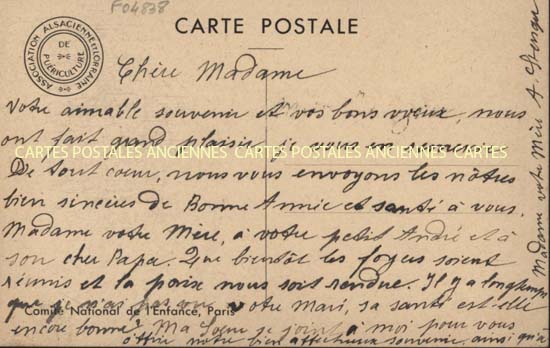 F04838
CARTE POSTALE
ASSOCIATION ALSACIENNE et LORRAINE
DE
PUÉRICULTURE
Chère Madame
Votre aimable souvenir et vos bons voeux, nous
ont fait grand plaisir, je vous en remercie
CARTES POSTALES ANCIENNES CARTES POSTALES ANCIENNES CARTES
De tout coeur, nous vous envoyons les nôtres
bien sincères de Bonne Année et santé à vous.
Madame votre Mère, à votre petit André et à
son cher Papa. Que bientôt les foyers soient
réunis et la paix nous soit rendue. Il y a longtemps
que je n'ai pas vu votre Mari, sa santé est-elle
Comité National de l'Enfance, Paris
encore bonne? Ma Soeur se joint à moi pour vous
offrir notre bien affectueux souvenir, ainsi qu'à
Madame votre Mère A.